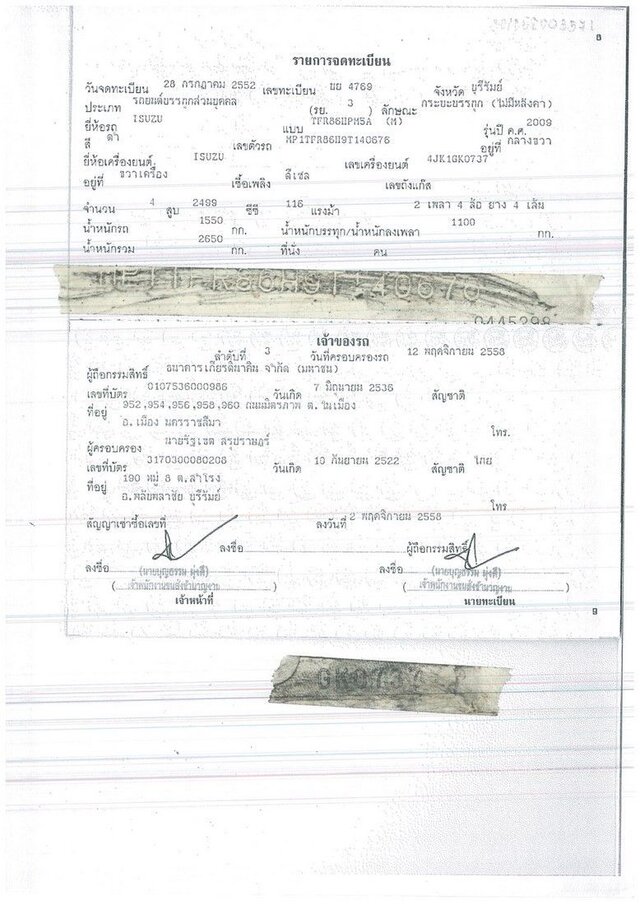 8
รายการจดทะเบียน
วันจดทะเบียน 28 กรกฎาคม 2552 เลขทะเบียน บย 4769 จังหวัด บุรีรัมย์
ประเภท รถยนต์บรรทุกส่วนบุคคล (รย. 3 ) ลักษณะ กระบะบรรทุก (ไม่มีหลังคา)
ยี่ห้อรถ ISUZU แบบ TFR86HPM5A (M) รุ่นปี ค.ศ. 2009
สี ดำ เลขตัวรถ MP1TFR86H9T140676 อยู่ที่ กลางขวา
ยี่ห้อเครื่องยนต์ ISUZU เลขเครื่องยนต์ 4JK1GK0737
อยู่ที่ ขวาเครื่อง เชื้อเพลิง ดีเซล เลขถังแก๊ส
จำนวน 4 สูบ 2499 ซีซี 116 แรงม้า 2 เพลา 4 ล้อ ยาง 4 เส้น
น้ำหนักรถ 1550 กก. น้ำหนักบรรทุก/น้ำหนักลงเพลา 1100 กก.
น้ำหนักรวม 2650 กก. ที่นั่ง คน
0445298
เจ้าของรถ
ลำดับที่ 3 วันที่ครอบครองรถ 12 พฤศจิกายน 2558
ผู้ถือกรรมสิทธิ์ ธนาคารเกียรตินาคิน จำกัด (มหาชน)
เลขที่บัตร 0107536000986 วันเกิด 7 มิถุนายน 2536 สัญชาติ
ที่อยู่ 952,954,956,958,960 ถนนมิตรภาพ ต.ในเมือง
อ.เมือง นครราชสีมา โทร.
ผู้ครอบครอง นายรัฐเขต สรุปราษฎร์
เลขที่บัตร 3170300080208 วันเกิด 10 กันยายน 2522 สัญชาติ ไทย
ที่อยู่ 190 หมู่ 8 ต.สำโรง
อ.พลับพลาชัย บุรีรัมย์ โทร
สัญญาเช่าซื้อเลขที่ ลงวันที่ 2 พฤศจิกายน 2558
ลงชื่อ ผู้ถือกรรมสิทธิ์
ลงชื่อ (นายบุญธรรม มุ่งดี) (นายบุญธรรม มุ่งดี)
( เจ้าพนักงานขนส่งชำนาญงาน ) ( เจ้าพนักงานขนส่งชำนาญงาน )
เจ้าหน้าที่ นายทะเบียน
9
GK0737